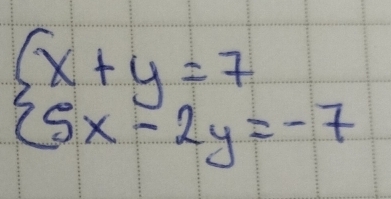 x + y = 7
5x - 2y = -7